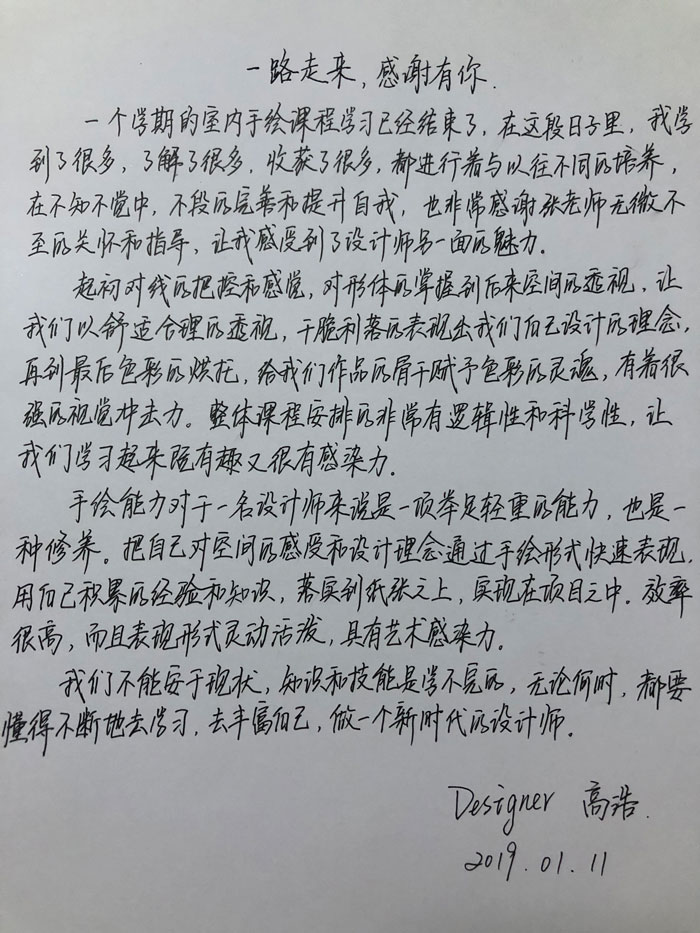 一路走来，感谢有你.
一个学期的室内手绘课程学习已经结束了，在这段日子里，我学
到了很多，了解了很多，收获了很多，都进行着与以往不同的培养，
在不知不觉中，不段的完善和提升自我，也非常感谢张老师无微不
至的关怀和指导，让我感受到了设计师另一面的魅力。
起初对线的把控和感觉，对形体的掌握到后来空间的透视，让
我们以舒适合理的透视，干脆利落的表现出我们自己设计的理念，
再到最后色彩的烘托，给我们作品的骨干赋予色彩的灵魂，有着很
强的视觉冲击力。整体课程安排的非常有逻辑性和科学性，让
我们学习起来既有趣又很有感染力.
手绘能力对于一名设计师来说是一项举足轻重的能力，也是一
种修养。把自己对空间的感受和设计理念通过手绘形式快速表现，
用自己积累的经验和知识，落实到纸张之上，实现在项目之中. 效率
很高，而且表现形式灵动活泼，具有艺术感染力.
我们不能安于现状，知识和技能是学不完的，无论何时，都要
懂得不断地去学习，去丰富自己，做一个新时代的设计师.
Designer 高浩.
2019.01.11